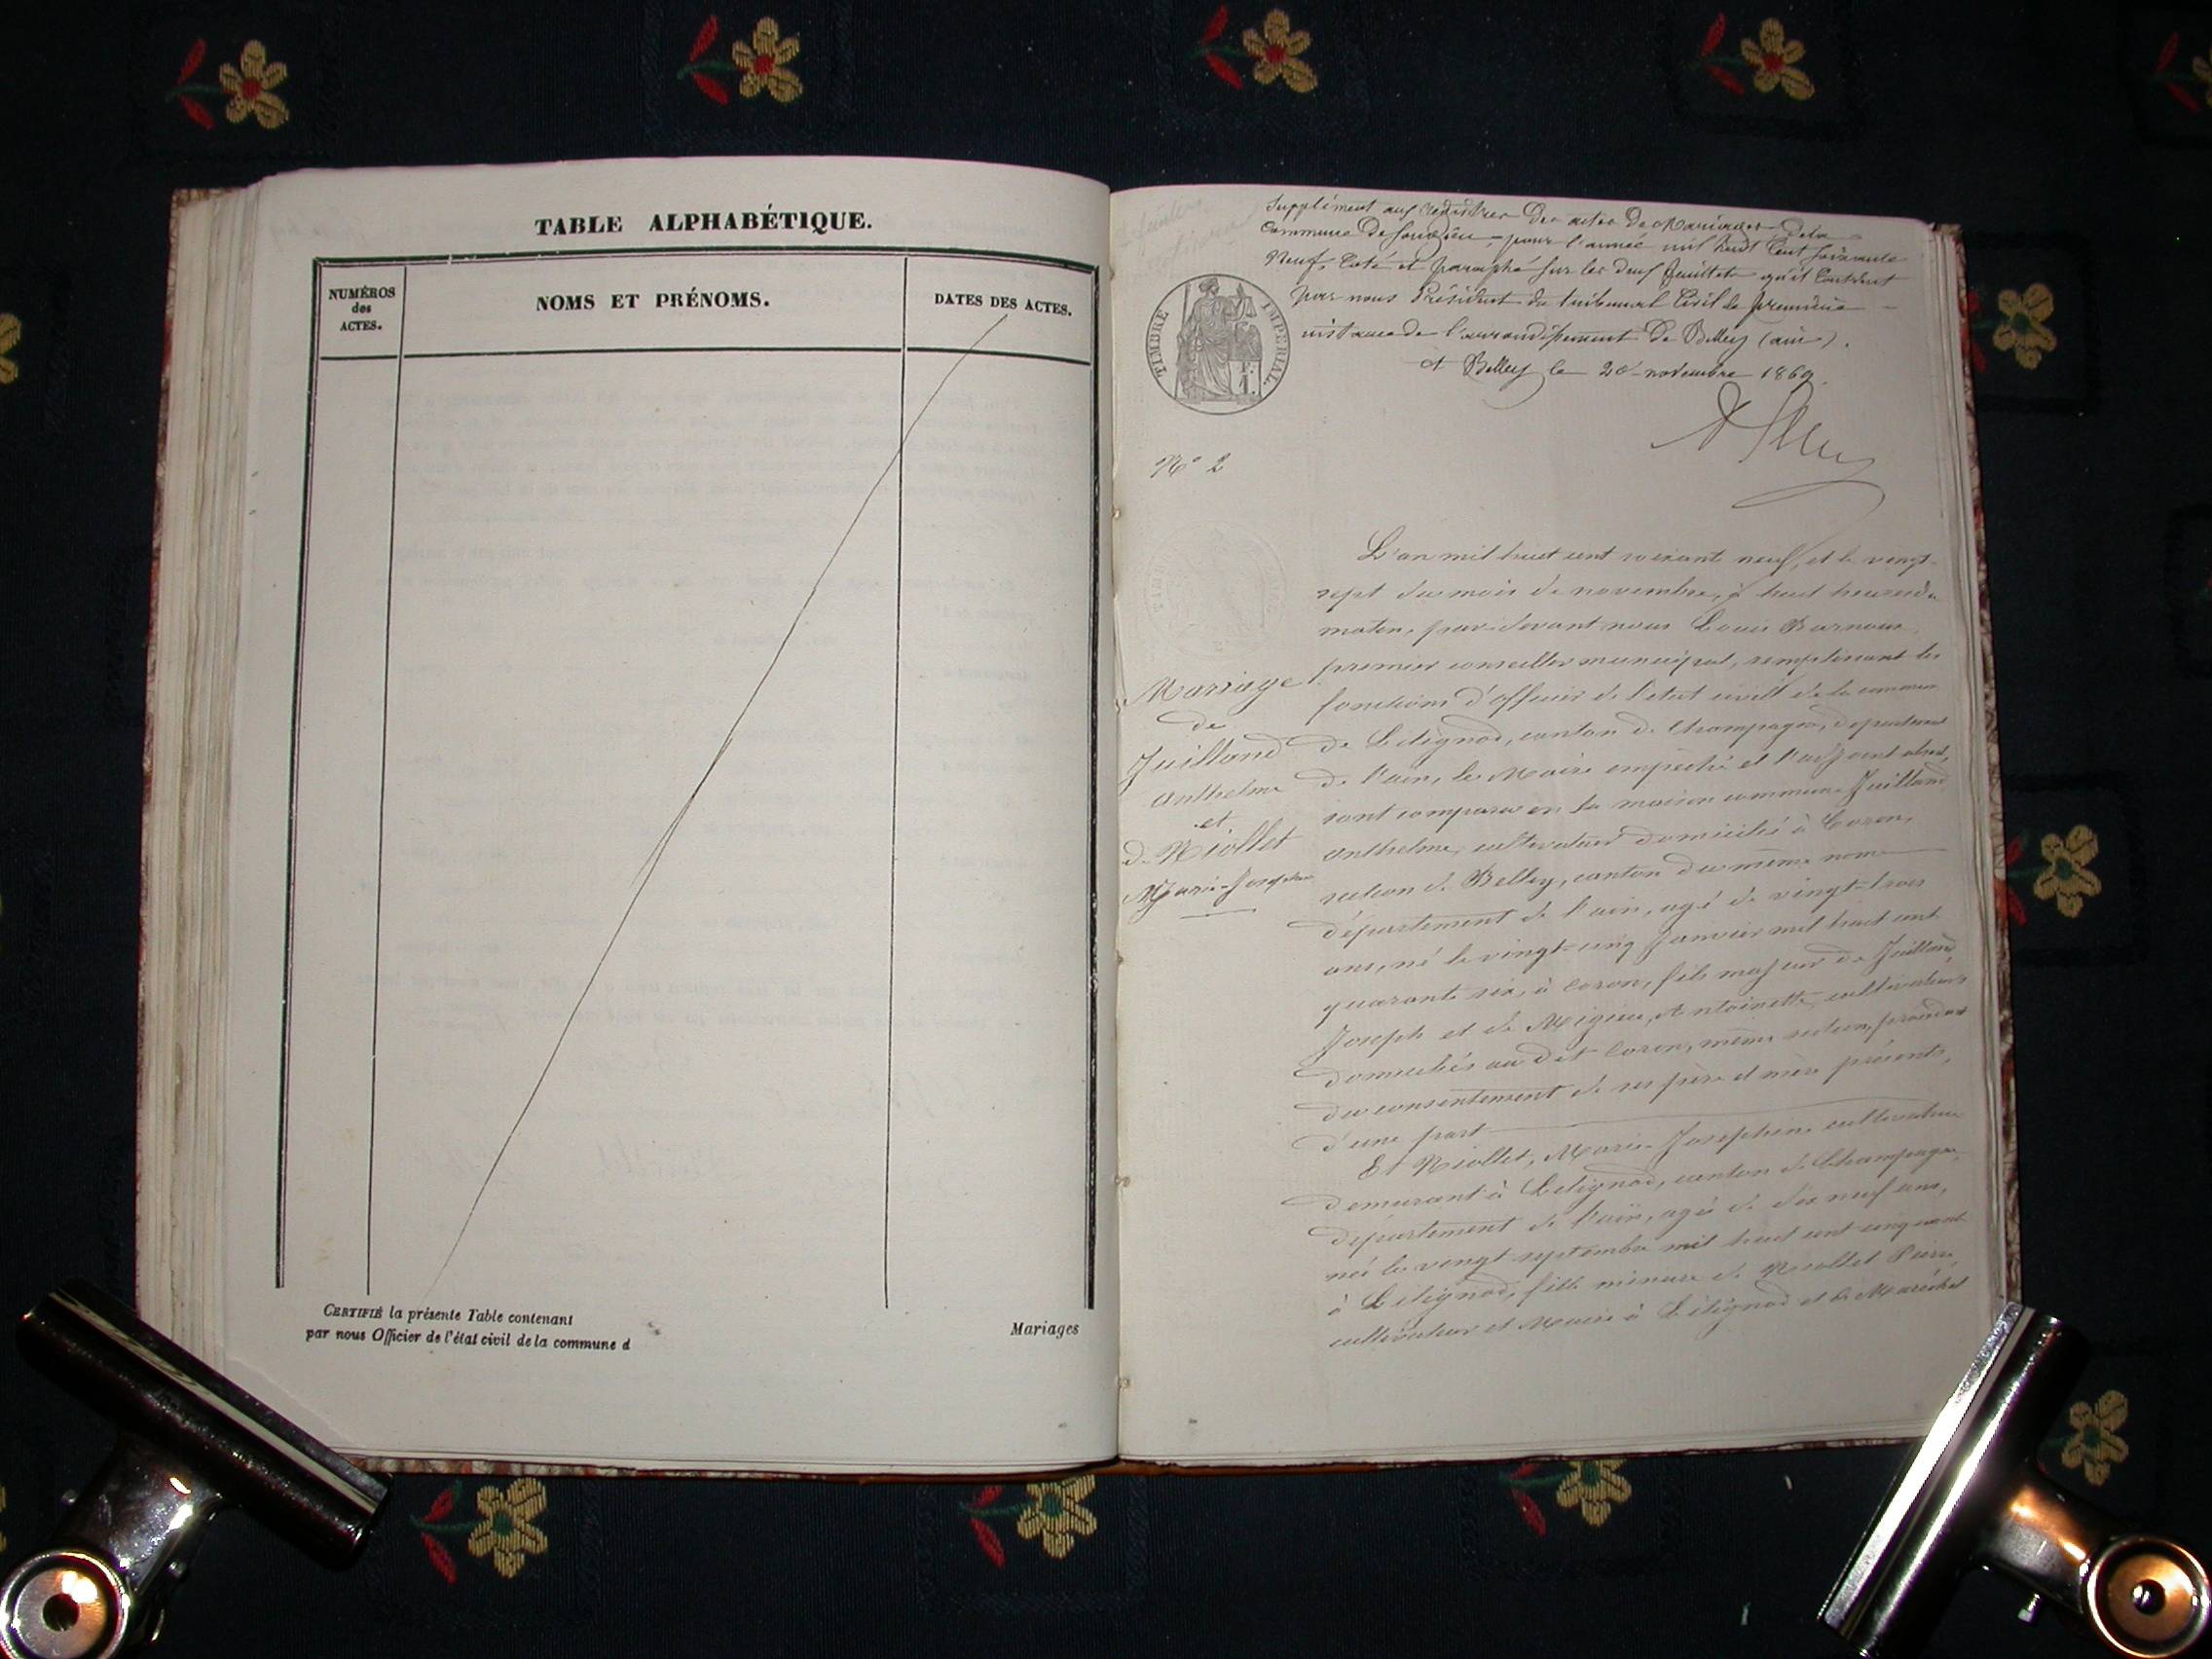 TABLE ALPHABÉTIQUE.
NUMÉROS
des
ACTES.
NOMS ET PRÉNOMS.
DATES DES ACTES.
CERTIFIÉ la présente Table contenant
par nous Officier de l'état civil de la commune d
Mariages
Supplément aux Registres des actes de Mariages de la
Commune de pour l'année mil huit Cent soixante
Neuf, Coté et paraphé sur les deux feuillets qu'il Contient
par nous Président du tribunal Civil de première
instance de l'arrondissement de Belley (ain).
A Belley le novembre 1869.
TIMBRE IMPERIAL.
1
N° 2
Mariage
de
Juilland
Anthelme
et
de Riollet
Marie-Josephine
L'an mil huit cent soixante neuf, et le vingt-
sept du mois de novembre, à huit heures du
matin, par-devant nous Louis
premier conseiller municipal, remplissant les
fonctions d'officier de l'etat civil de la commune
de Lilignod, canton de Champagne, département
de l'ain, le Maire empêché et l'adjoint absent,
sont comparu en la maison commune Juilland
Anthelme, cultivateur domicilié à Coron,
section de Belley, canton du même nom
département de l'ain, agé de vingt-trois
ans, né le vingt-cinq Janvier mil huit cent
quarante six, à Coron, fils majeur de Juilland,
Joseph et de Migieu, Antoinette, cultivateurs
domiciliés au dit Coron, même section, procédant
du consentement de ses père et mère présents,
d'une part
Et Riollet, Marie-Josephine cultivatrice
demeurant à Lilignod, canton de Champagne,
département de l'ain, agée de dix neuf ans,
née le vingt septembre mil huit cent cinquante
à Lilignod, fille mineure de Riollet Pierre
cultivateur et Maire à Lilignod et de Maréchal